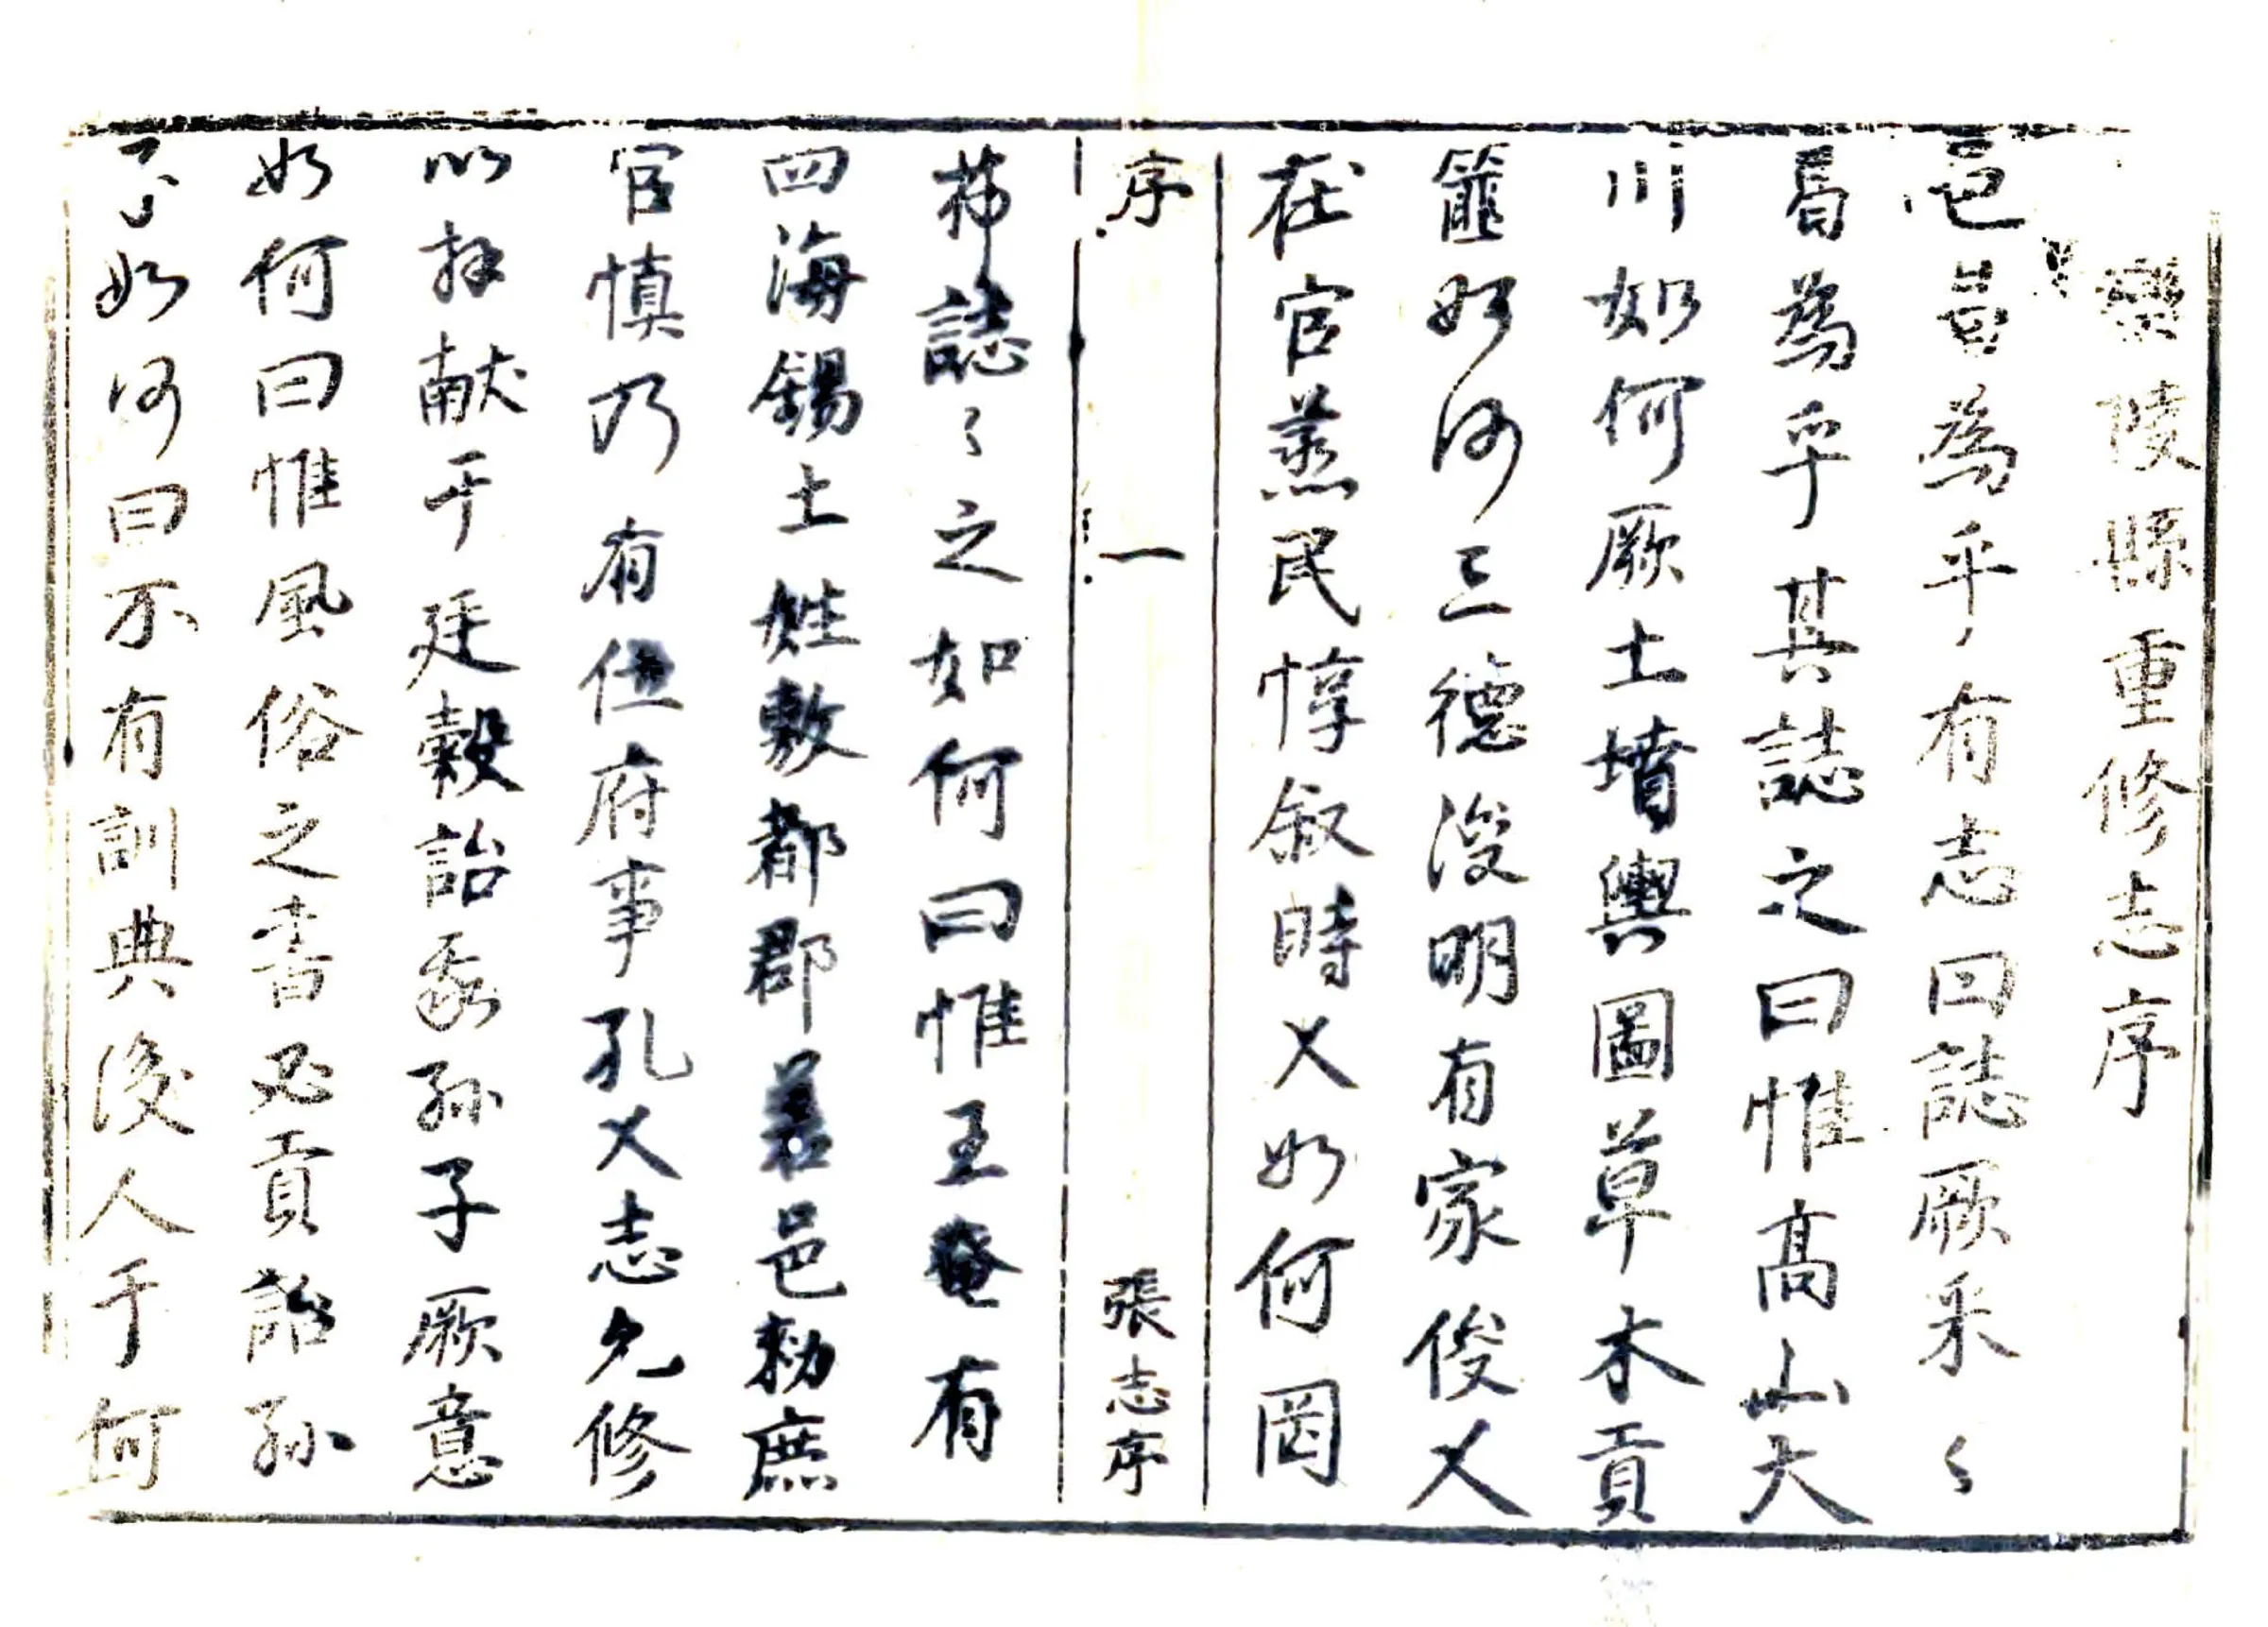 樂陵縣重修志序
邑曷為乎有志曰誌厥采〻
曷為乎其誌之曰惟高山大
川如何厥土墳輿圖草木貢
篚如何三德浚明有家俊乂
在官蒸民惇叙時乂如何罔
序 一 張志序
弗誌〻之如何曰惟王奄有
四海錫土姓敷都郡邑勑庶
官慎乃有位府事孔乂志允修
以拜献于廷穀詒孫子厥意
如何曰惟風俗之書必貢詒孫
子如何曰不有訓典後人于何